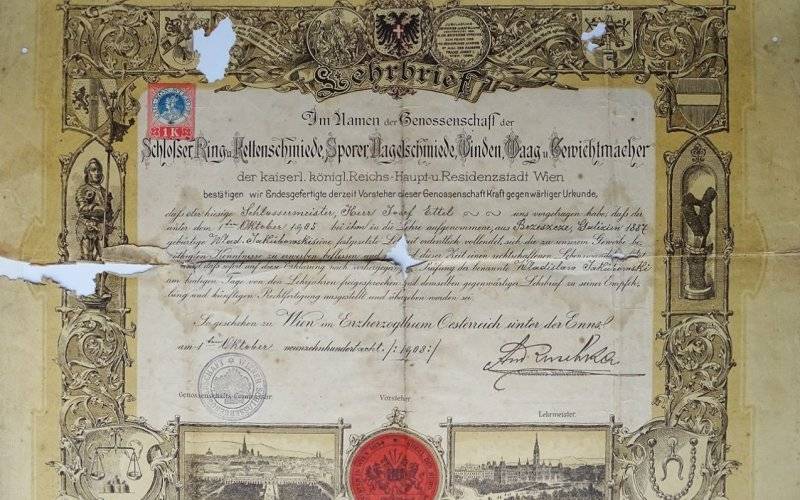 Lehrbrief
1 K
Im Namen der Genossenschaft der
Schlosser Ring u. Kettenschmiede, Sporer Nagelschmiede, Winden, Waag u. Gewichtmacher
der kaiserl. königl. Reichs-Haupt u. Residenzstadt Wien
bestätigen wir Endesgefertigte derzeit Vorsteher dieser Genossenschaft Kraft gegenwärtiger Urkunde,
daß der hiesige Schlossermeister, Herr Josef Ettel uns vorgetragen habe, daß der
unter dem 1ten Oktober 1905 bei ihm in die Lehre aufgenommene, aus Brzeszcze, Galizien 1887
gebürtige Wlad. Jakubowski seine festgesetzte ordentlich vollendet, sich die zu unserem Gewerbe
Kenntnisse zu erwerben beflissen dieser Zeit einen rechtschaffenen Lebenswandel
daß auf diese Erklärung nach vorhergegangener Prüfung der benannte Wladislaw Jakubowski
am heutigen Tage von den Lehrjahren freigesprochen und demselben gegenwärtiger Lehrbrief zu seiner Empfeh-
lung und künftigen Rechtfertigung ausgestellt und übergeben worden ist.
So geschehen zu Wien im Erzherzogthum Oesterreich unter der Enns
am 1ten Oktober neunzehnhundertacht /:1908:/
Genossenschafts-Commissär
Vorsteher
Lehrmeister.